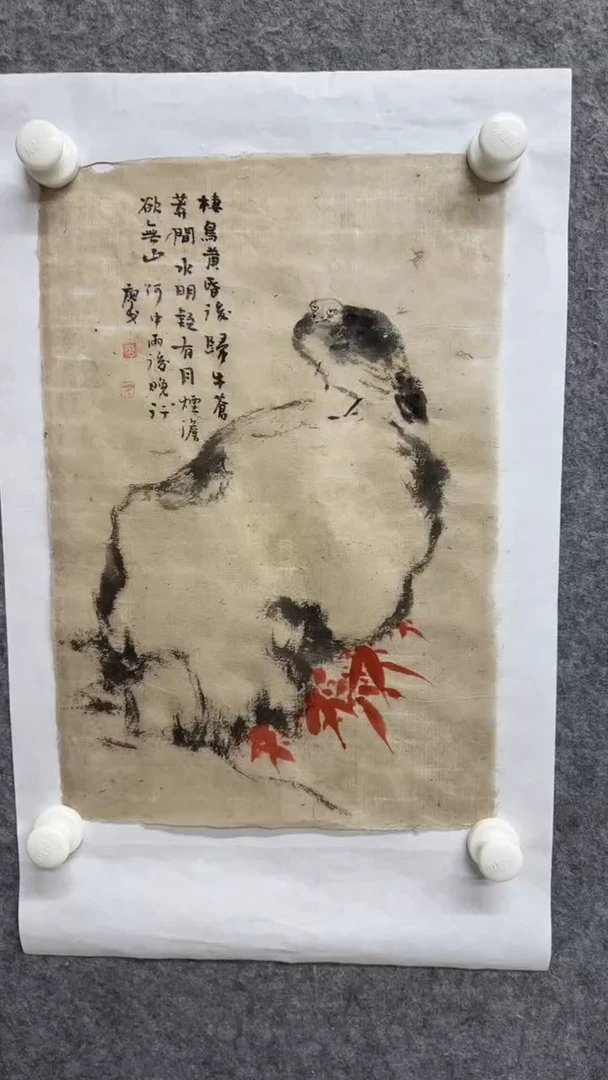 棲鳥黃昏後歸牛蒼
莽間水明疑有月煙澹
欲無山 河中雨後晚行